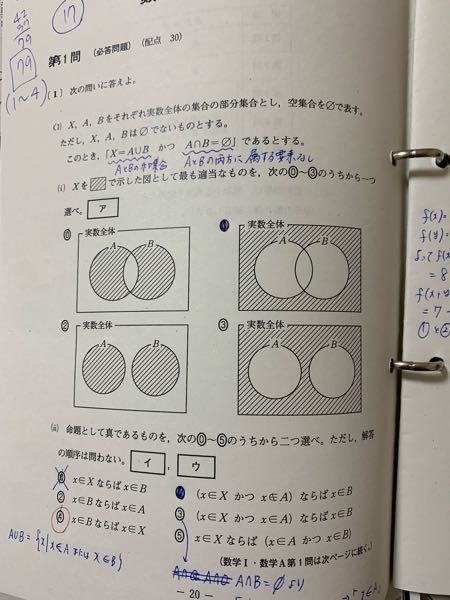 42
79
79
(1~4)
17
数
第1問 (必答問題) (配点 30)
〔1〕 次の問いに答えよ。
(1) X, A, B をそれぞれ実数全体の集合の部分集合とし,空集合を∅で表す。
ただし, X, A, B は∅でないものとする。
このとき,「X=A∪B かつ A∩B=∅」であるとする。
AとBの和集合 AとBの両方に属する要素なし
(i) Xを で示した図として最も適当なものを,次の⓪~③のうちから一つ
選べ。 ア
⓪ 実数全体 A B
① 実数全体 A B
② 実数全体 A B
③ 実数全体 A B
(ii) 命題として真であるものを,次の⓪~⑤のうちから二つ選べ。ただし,解答
の順序は問わない。 イ , ウ
⓪ x∈X ならば x∈B
① (x∈X かつ x∉A) ならば x∈B
② x∈B ならば x∈A
③ (x∈X かつ x∈A) ならば x∈B
④ x∈B ならば x∈X
⑤ x∈X ならば (x∈A かつ x∈B)
A∪B = {x|x∈A または x∈B}
(数学Ⅰ・数学A第1問は次ページに続く。)
A∩B=∅より
- 20 -
f(x)=
f(y)=
よって f(x
= 8
f(x+y
= 7-
①と②